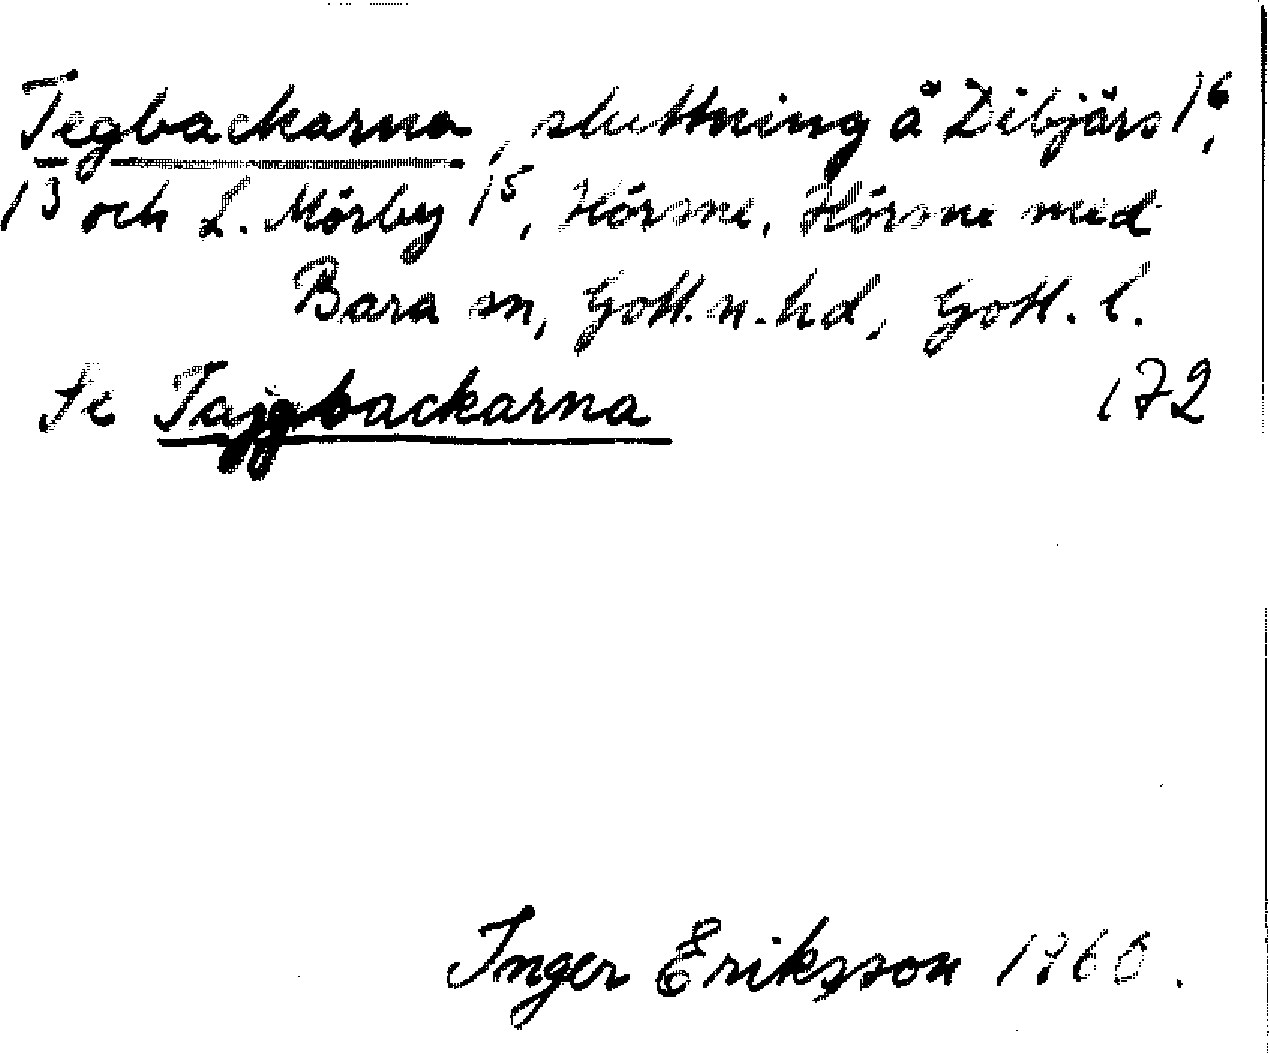 Tegbackarna, sluttning å Dibjärs 1⁶,
1³ och L. Mörby 1⁵, Hörsne, Hörsne med
Bara sn, Gotl. n. hd, Gotl. l.
Se Tajgbackarna 172
Inger Eriksson 1960.